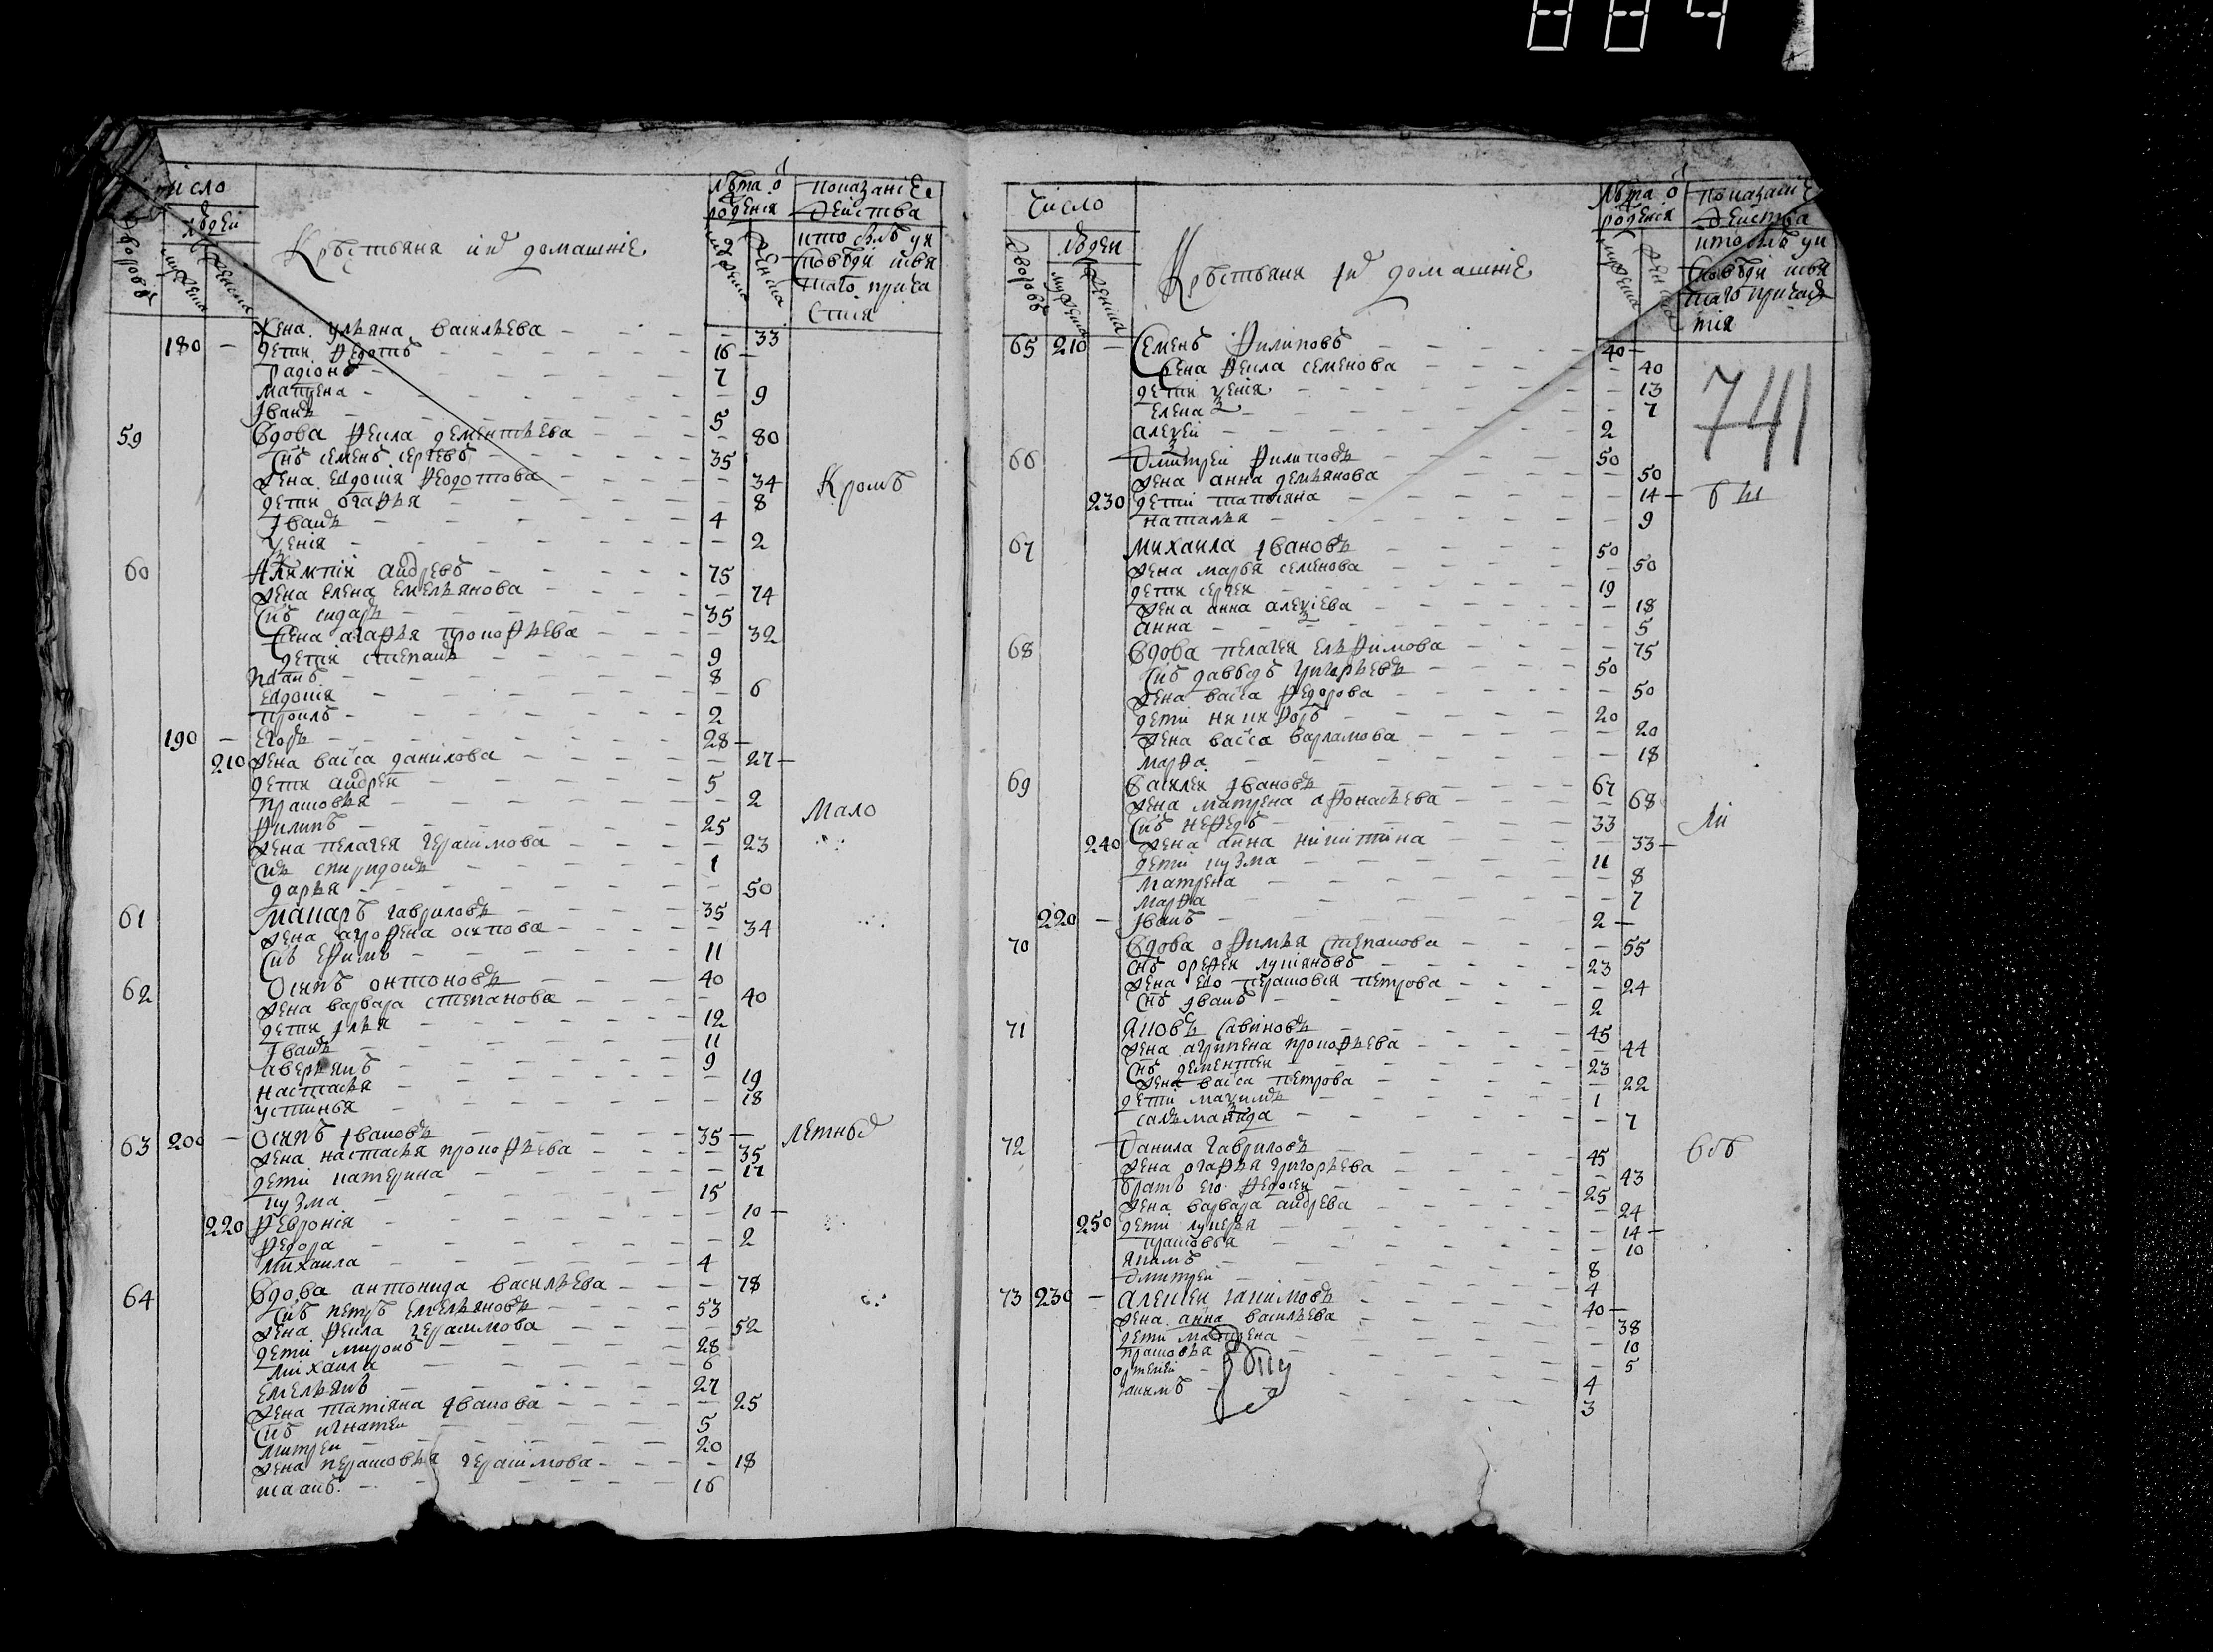 884
Число
людей
дворовъ
мужеска
женска
Крестьяня и ихъ домашние
лѣта о
рождения
мужеска
женска
показание
действа
кто былъ у и
сповѣди и свя
таго прича
стия
жена ульяна васильева - - - 33
180 - дети федотъ - - - 16 -
радионъ - - - 7
матрена - - - 9
иванъ - - - 5
59 вдова фекла дементьева - - - 80
снъ семенъ сергѣевъ - - - 35
жена евдокия федотова - - - 34
дети огафья - - - 8
иванъ - - - 4
ксения - - - 2
Кромѣ
60 Алимпiи андреевъ - - - 75
жена елена емельянова - - - 74
снъ сидаръ - - - 35
жена агафья прокофьева - - - 32
дети степанъ - - - 9
исакъ - - - 8
евдокия - - - 6
проклъ - - - 2
190 - егоръ - - - 28 -
210 жена васса данилова - - - 27 -
дети андреи - - - 5
прасковья - - - 2
Мало
филипъ - - - 25
жена пелагея герасимова - - - 23
снъ спиридонъ - - - 1
дарья - - - 50
61 макаръ гавриловъ - - - 35
жена агрофена осипова - - - 34
снъ ефимъ - - - 11
62 Осипъ онтоновъ - - - 40
жена варвара степанова - - - 40
дети илья - - - 12
иванъ - - - 11
аверьянъ - - - 9
настасья - - - 19
устинья - - - 18
63 200 - Осипъ ивановъ - - - 35 -
летныхъ
жена настасья прокофьева - - - 35
дети катерина - - - 17
кузма - - - 15
220 феврония - - - 10 -
федора - - - 2
михаила - - - 4
64 вдова антонида васильева - - - 78
снъ петръ емельяновъ - - - 53
жена фекла герасимова - - - 52
дети миронъ - - - 28
михаила - - - 6
емельянъ - - - 27
жена татияна иванова - - - 25
снъ игнатеи - - - 5
митреи - - - 20
жена перасковья герасимова - - - 18
исаакъ - - - 16
Число
людеи
дворовъ
мужеска
женска
Крестьяня и ихъ домашние
лѣта о
рождения
мужеска
женска
показание
действа
кто былъ у и
сповѣди и свя
таго причас
тия
741
65 210 - Семенъ филиповъ - - - 40 -
жена фекла семенова - - - 40
дети ксения - - - 13
елена - - - 7
алексеи - - - 2
66 дмитреи филиповъ - - - 50
жена анна демьянова - - - 50
230 дети татияна - - - 14 -
наталья - - - 9
67 михаила ивановъ - - - 50
жена марья семенова - - - 50
дети сергеи - - - 19
жена анна алексиева - - - 18
анна - - - 5
68 вдова пелагея ельфимова - - - 75
снъ давыдъ григорьевъ - - - 50
жена васса федорова - - - 50
дети никифоръ - - - 20
жена васса варламова - - - 20
марфа - - - 18
69 василеи ивановъ - - - 67
жена матрена афонасьева - - - 68
снъ нефедъ - - - 33
ли
240 жена анна никитина - - - 33 -
дети кузма - - - 11
матрена - - - 8
марфа - - - 7
220 - иванъ - - - 2 -
70 вдова офимья степанова - - - 55
снъ орефеи лукияновъ - - - 23
жена его перасковия петрова - - - 24
снъ иванъ - - - 2
71 яковъ савиновъ - - - 45
жена агрипена прокофьева - - - 44
снъ дементеи - - - 23
жена васса петрова - - - 22
дети максимъ - - - 1
саломанида - - - 7
72 данила гавриловъ - - - 45
жена огафья григорьева - - - 43
братъ его федосеи - - - 25
жена варвара андреева - - - 24
250 дети лукерья - - - 14 -
прасковья - - - 10
якимъ - - - 8
дмитреи - - - 4
73 230 - алексеи якимовъ - - - 40 -
жена анна васильева - - - 38
дети матрена - - - 10
прасковья - - - 5
ортемеи - - - 4
якимъ - - - 3